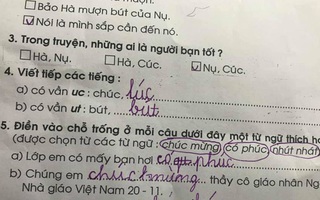 ☐ Bảo Hà mượn bút của Nụ.
☑ Nói là mình sắp cần đến nó.
3. Trong truyện, những ai là người bạn tốt ?
☐ Hà, Nụ. ☐ Hà, Cúc. ☑ Nụ, Cúc.
4. Viết tiếp các tiếng :
a) có vần uc : chúc, lúc
b) có vần ut : bút, bút
5. Điền vào chỗ trống ở mỗi câu dưới đây một từ ngữ thích h
(được chọn từ các từ ngữ : chúc mừng, có phúc, nhút nhát)
a) Lớp em có mấy bạn hơi có phúc
b) Chúng em chúc mừng... thầy cô giáo nhân Ng
Nhà giáo Việt Nam 20 - 11.